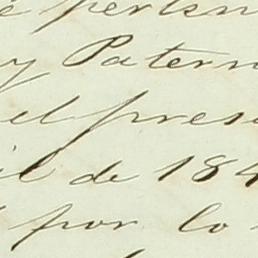 e perten
y Patern
el prese
il de 184
por lo